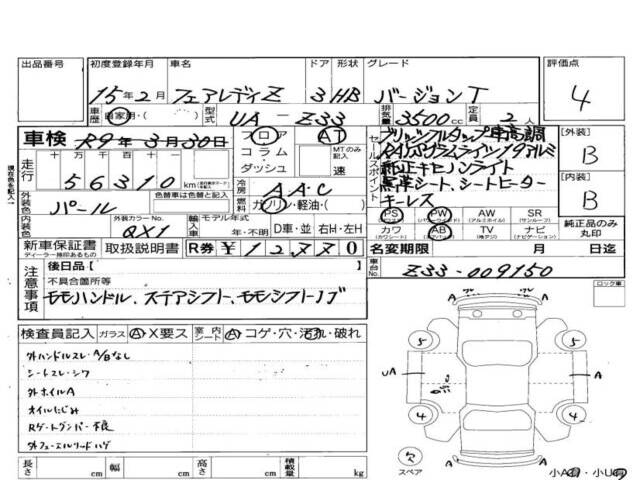 出品番号 初度登録年月 車名 ドア 形状 グレード 評価点
15年2月 フェアレディZ 3 HB バージョンT 4
車歴 自家用・( ) 型式 UA-Z33 排気量 3500cc 定員 2人
車検 R9年3月30日 フロア AT
走行 十万 万 千 百 十 一 コラム・ MTのみ記入
56310 km ダッシュ 速
セールスポイント
純正キセノンライト
黒革シート、シートヒーター
キーレス
[外装] B
[内装] B
外装色 パール 色替車は色替と記入 冷房 AAC
燃料 ガソリン・軽油・( )
内装色 外装カラーNo. QX1 輸入車 モデル年式 年・不明 D車・並 右H・左H
PS PW AW SR
(パワーウインド) (アルミホイル) (サンルーフ)
カワ AB TV ナビ
(カワシート) (エアバッグ) (ナビゲーション)
純正品のみ丸印
新車保証書 取扱説明書 R券 ¥12770 名変期限 月 日迄
ディーラー捺印あるもの
注意事項 後日品[ ] 車台No. Z33-009150
不具合箇所等
モモハンドル、ステアシフト、モモシフトノブ
ロック車
検査員記入 ガラス A・X要ス 室内シート A・コゲ・穴・汚れ・破れ
外ハンドルスレ・A/Bなし
シートスレ・シワ
外ホイルA
オイルにじみ
Rゲートダンパー不良
A
5 5
UA A A
4 4
A
スペア
長さ cm 幅 cm 高さ cm 積載量 kg
現在色を記入↑